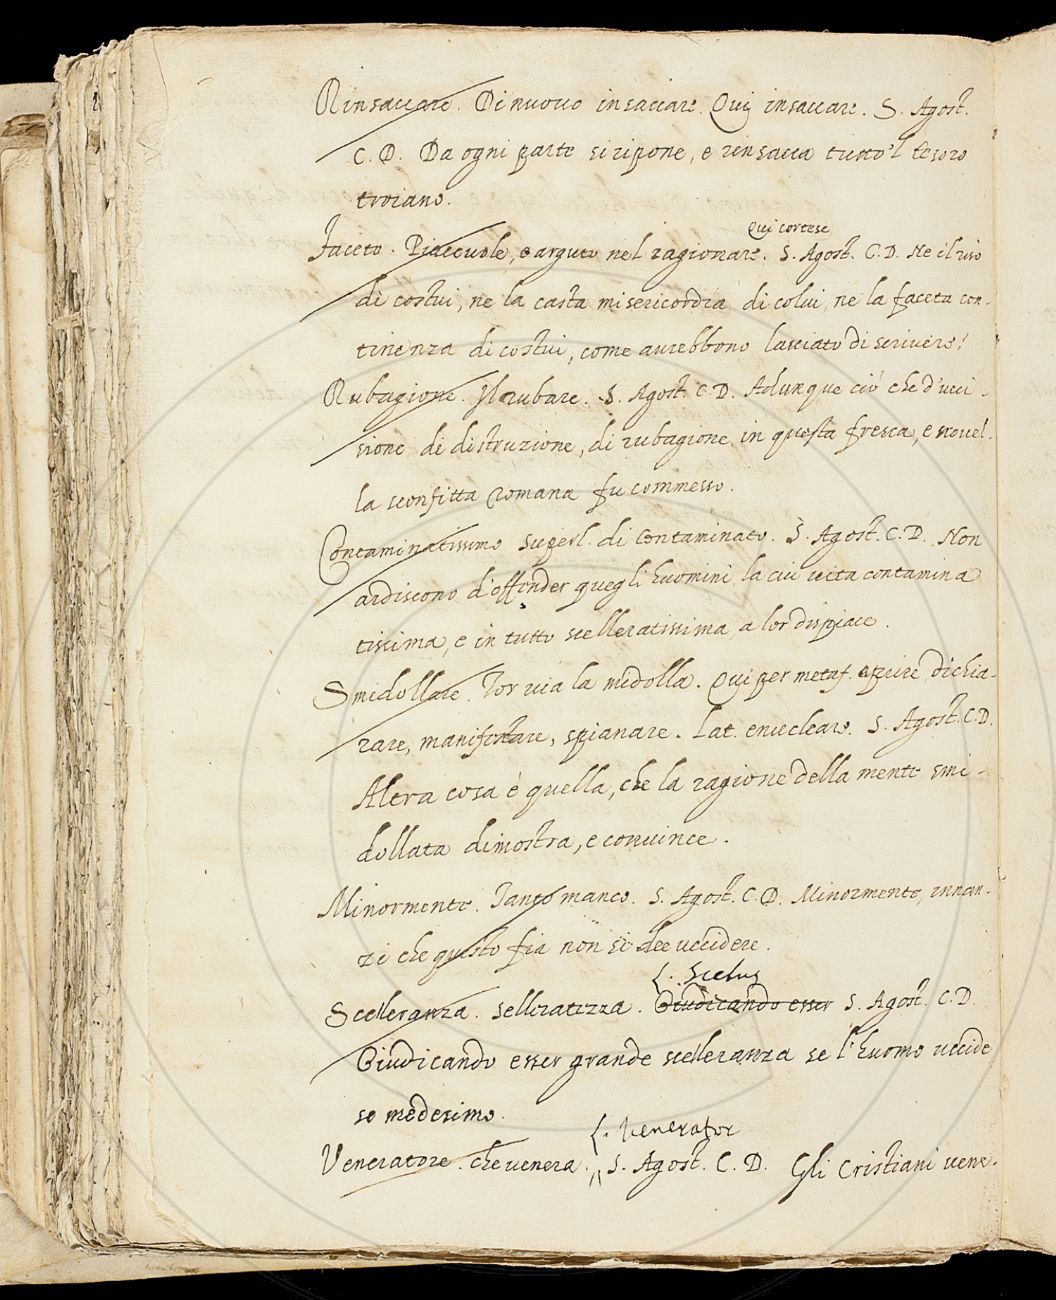 Rinsaccare. Di nuouo insaccare. Qui insaccare. S. Agost.
C. D. Da ogni parte si ripone, e rinsacca tutto'l tesoro
troiano.
Qui cortese
Faceto. Piaceuole, e arguto nel ragionare. S. Agost. C. D. Ne il riso
di costui, ne la casta misericordia di colui, ne la faceta con-
tinenza di costui, come aurebbono lasciato di scriuere!
Rubagione. Il rubare. S. Agost. C. D. Adunque ciò che d'ucci-
sione di distruzione, di rubagione in questa fresca, e nouel-
la sconfitta romana fu commesso.
Contaminatissimo superl. di Contaminato. S. Agost. C. D. Non
ardiscono d'offender quegli huomini la cui uita contamina
tissima, e in tutto scelleratissima, a lor dispiace.
Smidollare. Tor uia la midolla. Qui per metaf. aprire, dichia-
rare, manifestare, spianare. Lat. enucleare. S. Agost. C. D.
Altra cosa è quella, che la ragione della mente smi-
dollata dimostra, e conuince.
Minormente. Tanto manco. S. Agost. C. D. Minormente, innan-
zi che questo fia non si dee uccidere.
L. Scelus
Scelleranza. Selleratezza. Giudicando esser S. Agost. C. D.
Giudicando esser grande scelleranza se l'huomo uccide
se medesimo.
L. Venerator
Veneratore. che uenera. S. Agost. C. D. Gli Cristiani vene-